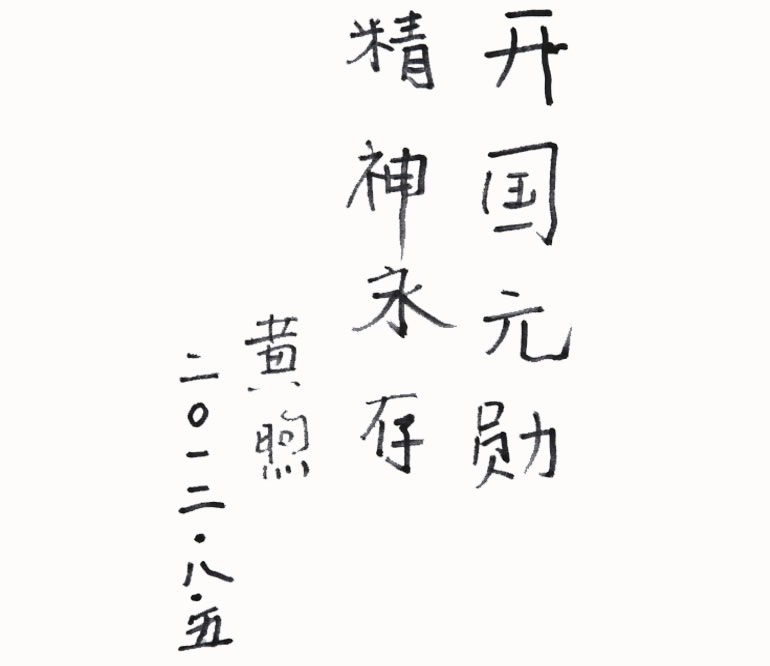 开国元勋
精神永存
黄煦
二〇一二·八·五